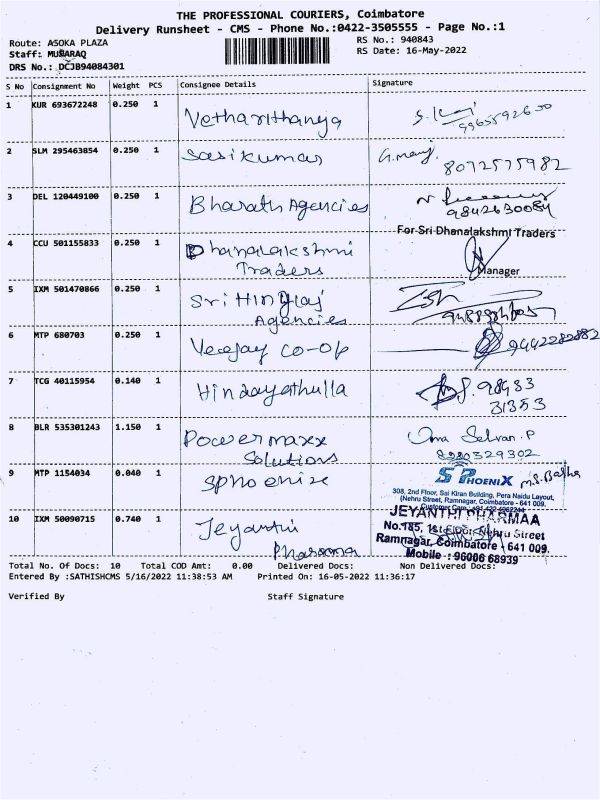 THE PROFESSIONAL COURIERS, Coimbatore
Delivery Runsheet - CMS - Phone No.:0422-3505555 - Page No.:1
Route: ASOKA PLAZA RS No.: 940843
Staff: MUBARAQ RS Date: 16-May-2022
DRS No.: DCJB94084301
S No Consignment No Weight PCS Consignee Details Signature
1 KUR 693672248 0.250 1 Vetharithanya
9965592600
2 SLM 295463854 0.250 1 Sasikumar G.manj
8072575982
3 DEL 120449100 0.250 1 Bharath Agencies
9842630084
For Sri Dhanalakshmi Traders
4 CCU 501155833 0.250 1 Dhanalakshmi
Traders Manager
5 IXM 501470866 0.250 1 Sri Hinglaj
Agencies
6 MTP 680703 0.250 1 Veejay co-op 9442282882
7 TCG 40115954 0.140 1 Hindayathulla 98433
31353
8 BLR 535301243 1.150 1 Powermaxx Uma Selvan.P
Solutions 8980329302
9 MTP 1154034 0.040 1 Sphoenix S PHOENIX M.S.Basha
308, 2nd Floor, Sai Kiran Building, Pera Naidu Layout,
(Nehru Street, Ramnagar, Coimbatore - 641 009.
Customer Care
10 IXM 50090715 0.740 1 Jeyanthi JEYANTHI PHARMAA
Pharama No.185, 1st Floor, Nehru Street
Ramnagar, Coimbatore - 641 009.
Mobile : 96006 68939
Total No. Of Docs: 10 Total COD Amt: 0.00 Delivered Docs: Non Delivered Docs:
Entered By :SATHISHCMS 5/16/2022 11:38:53 AM Printed On: 16-05-2022 11:36:17
Verified By Staff Signature